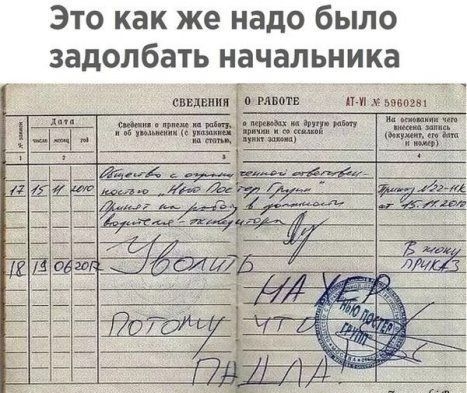 Это как же надо было
задолбать начальника
СВЕДЕНИЯ О РАБОТЕ
AT-VI № 5960281
№ записи
Дата
число месяц год
Сведения о приеме на работу, о переводах на другую работу
и об увольнении (с указанием причин и со ссылкой
на статью, пункт закона)
На основании чего
внесена запись
(документ, его дата
и номер)
1 2 3
Общество с ограниченной ответствен-
17 15 11 2010 ностью „Нью Постер Групп" Приказ №22-НК
Принят на работу в должности от 15.11.2010
водителя-экспедитора
18 19 06 2012 УВОЛИТЬ В ЖОПУ
ПРИКАЗ
НАХЕР
ПОТОМУ ЧТО
ПАДЛА!
НЬЮ ПОСТЕР
ГРУПП